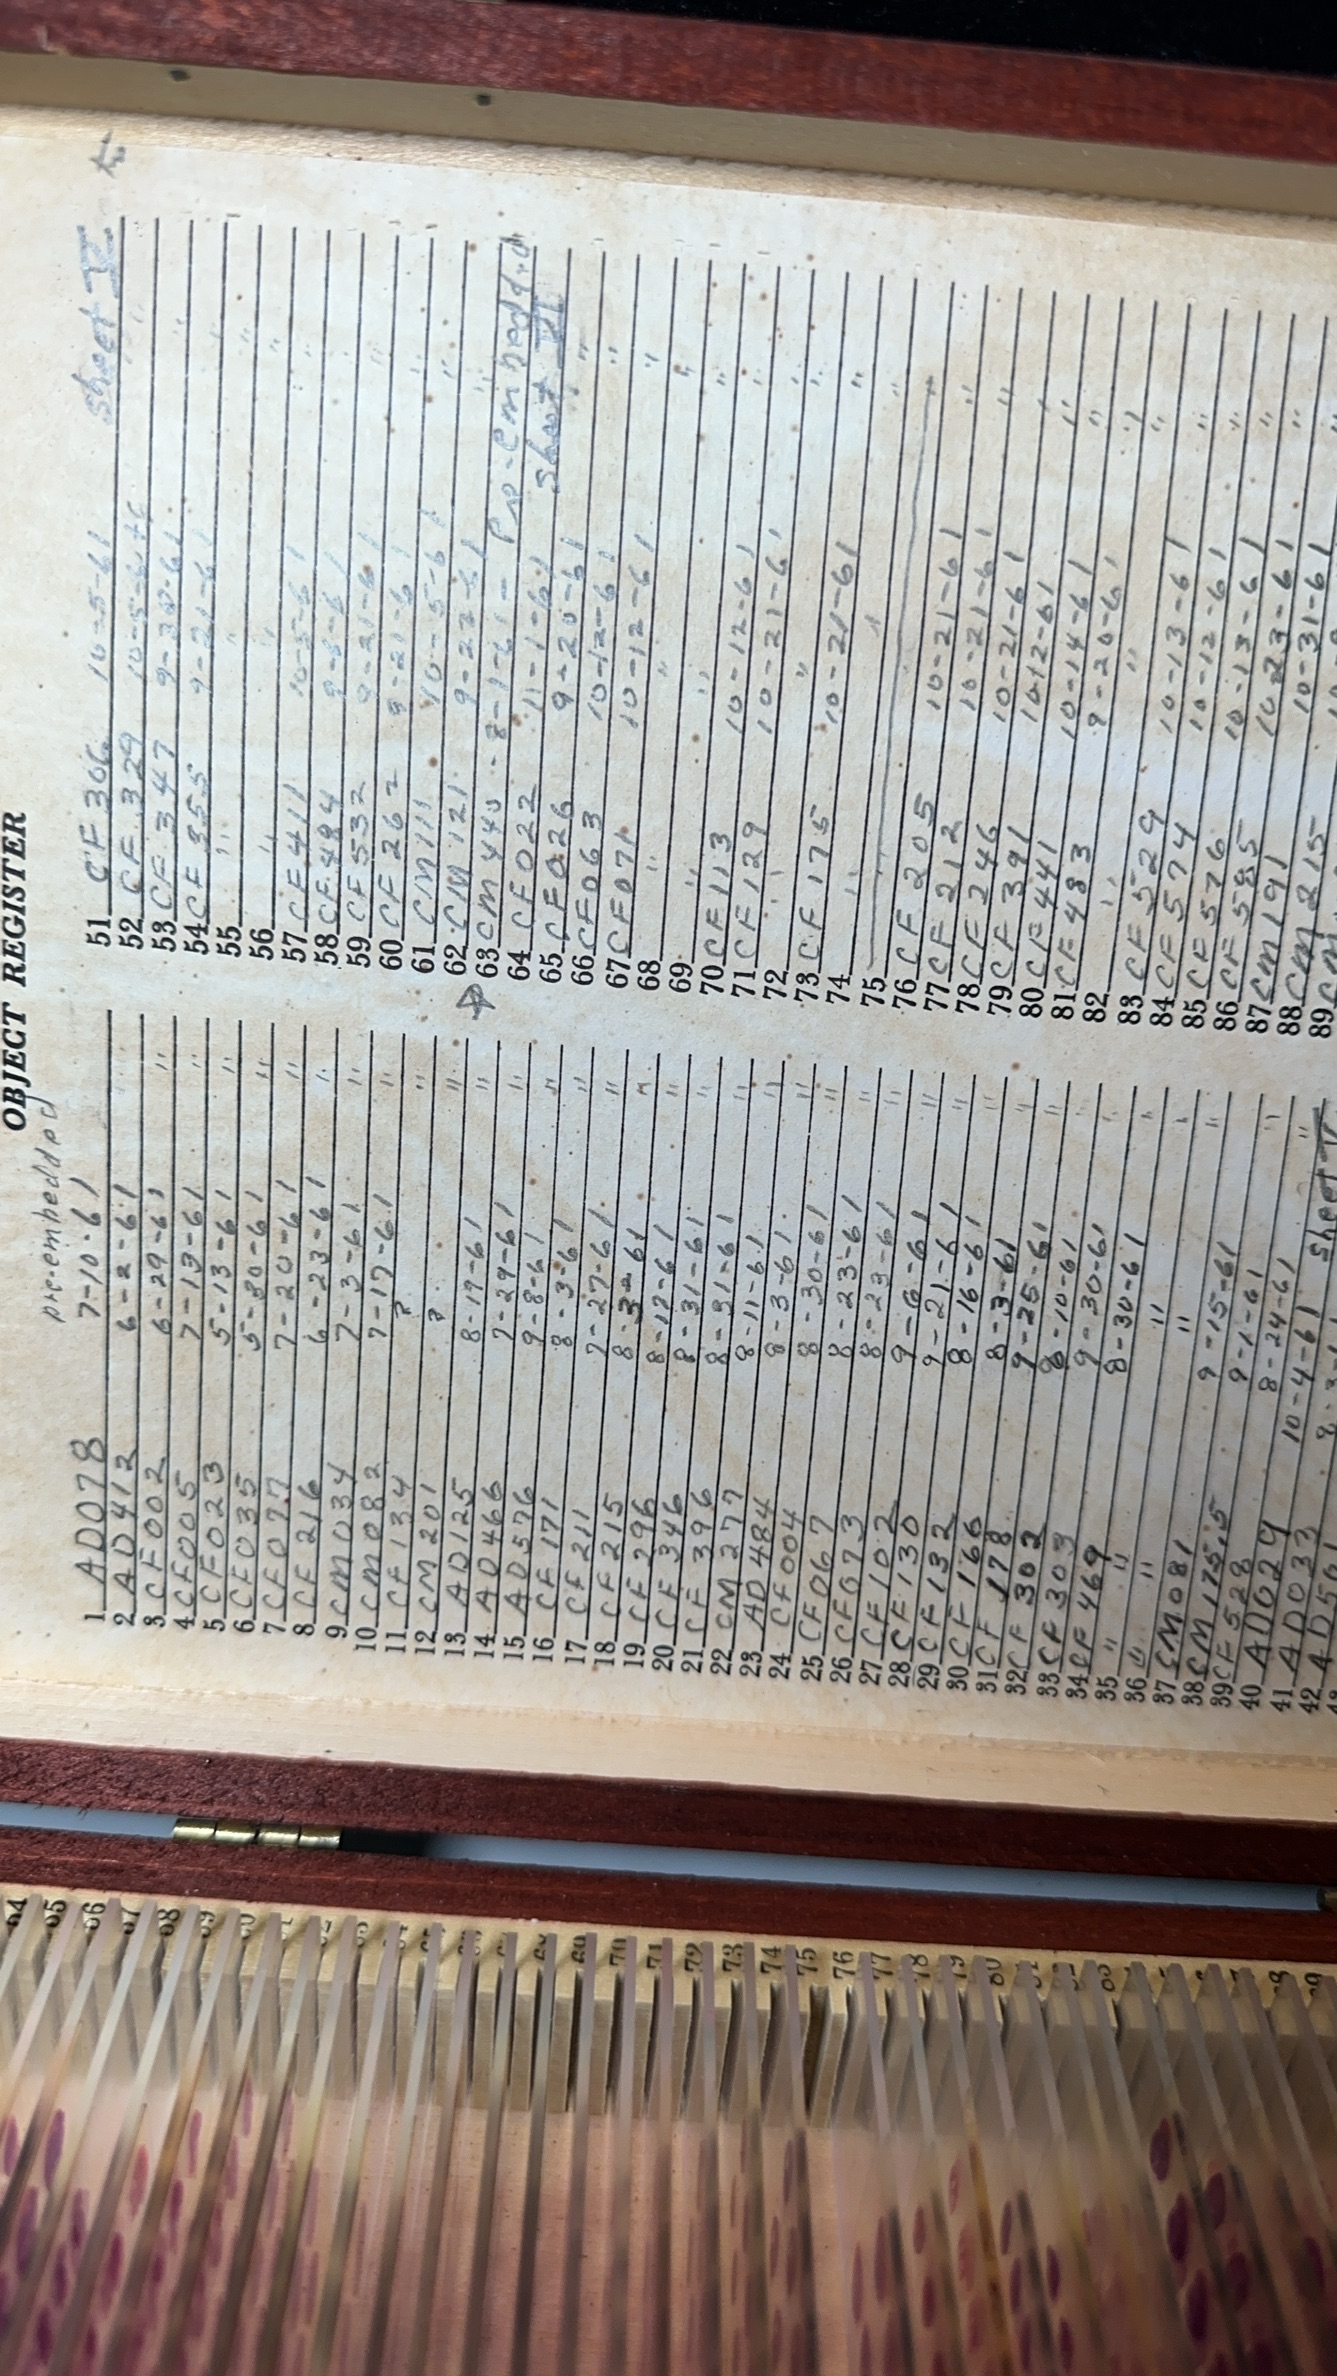 OBJECT REGISTER
pre-embedded
1 AD078 7-10-61
2 AD412 6-2-61 "
3 CF002 6-29-61 "
4 CF005 7-13-61 "
5 CF023 5-13-61 "
6 CF035 5-30-61 "
7 CF077 7-20-61 "
8 CF216 6-23-61 "
9 CM034 7-3-61 "
10 CM082 7-17-61 "
11 CF134 ? "
12 CM201 ? "
13 AD125 8-17-61 "
14 AD466 7-29-61 "
15 AD576 9-8-61 "
16 CF171 8-3-61 "
17 CF211 7-27-61 "
18 CF215 "
19 CF296 8-12-61 "
20 CF346 8-31-61 "
21 CF396 8-31-61 "
22 CM277 8-11-61 "
23 AD484 8-3-61 "
24 CF004 8-30-61 "
25 CF067 8-23-61 "
26 CF073 8-23-61 "
27 CF102 9-6-61 "
28 CF130 9-21-61 "
29 CF132 8-16-61 "
30 CF166 8-3-61 "
31 CF178 9-25-61 "
32 CF302 8-10-61 "
33 CF303 9-30-61 "
34 CF469 8-30-61 "
35 " " "
36 " " "
37 CM081 9-15-61 "
38 CM175.5 9-1-61
39 CF528 8-24-61 "
40 AD029 10-4-61 "
41 AD033 Sheet V
42
51 CF306 10-5-61 Sheet V
52 CF329 "
53 CF347 9-30-61 "
54 CF355 9-21-61 "
55 " " "
56 " " "
57 CF411 10-5-61 "
58 CF484 "
59 CF532 9-21-61 "
60 CF262 9-21-61 "
61 CM111 10-5-61 "
62 CM121 9-22-61 "
63 CM440 - 8-1-61 - Pre-Embedded
64 CF022 11-1-61 Sheet VI
65 CF026 9-20-61 "
66 CF063 10-12-61 "
67 CF071 10-12-61 "
68 " " "
69 " " "
70 CF113 10-12-61 "
71 CF129 10-21-61 "
72 " " "
73 CF175 10-21-61 "
74 " " "
75
76 CF205 10-21-61 "
77 CF212 10-21-61 "
78 CF246 10-21-61 "
79 CF391 10-12-61
80 CF441 10-14-61 "
81 CF483 9-20-61 "
82 " " "
83 CF529 10-13-61 "
84 CF574 10-12-61 "
85 CF576 10-13-61 "
86 CF585 10-23-61 "
87 CM191 10-31-61 "
88 CM215
89 CM
64
65
66
67
68
69
70
71
72
73
74
75
76
77
78
79
80